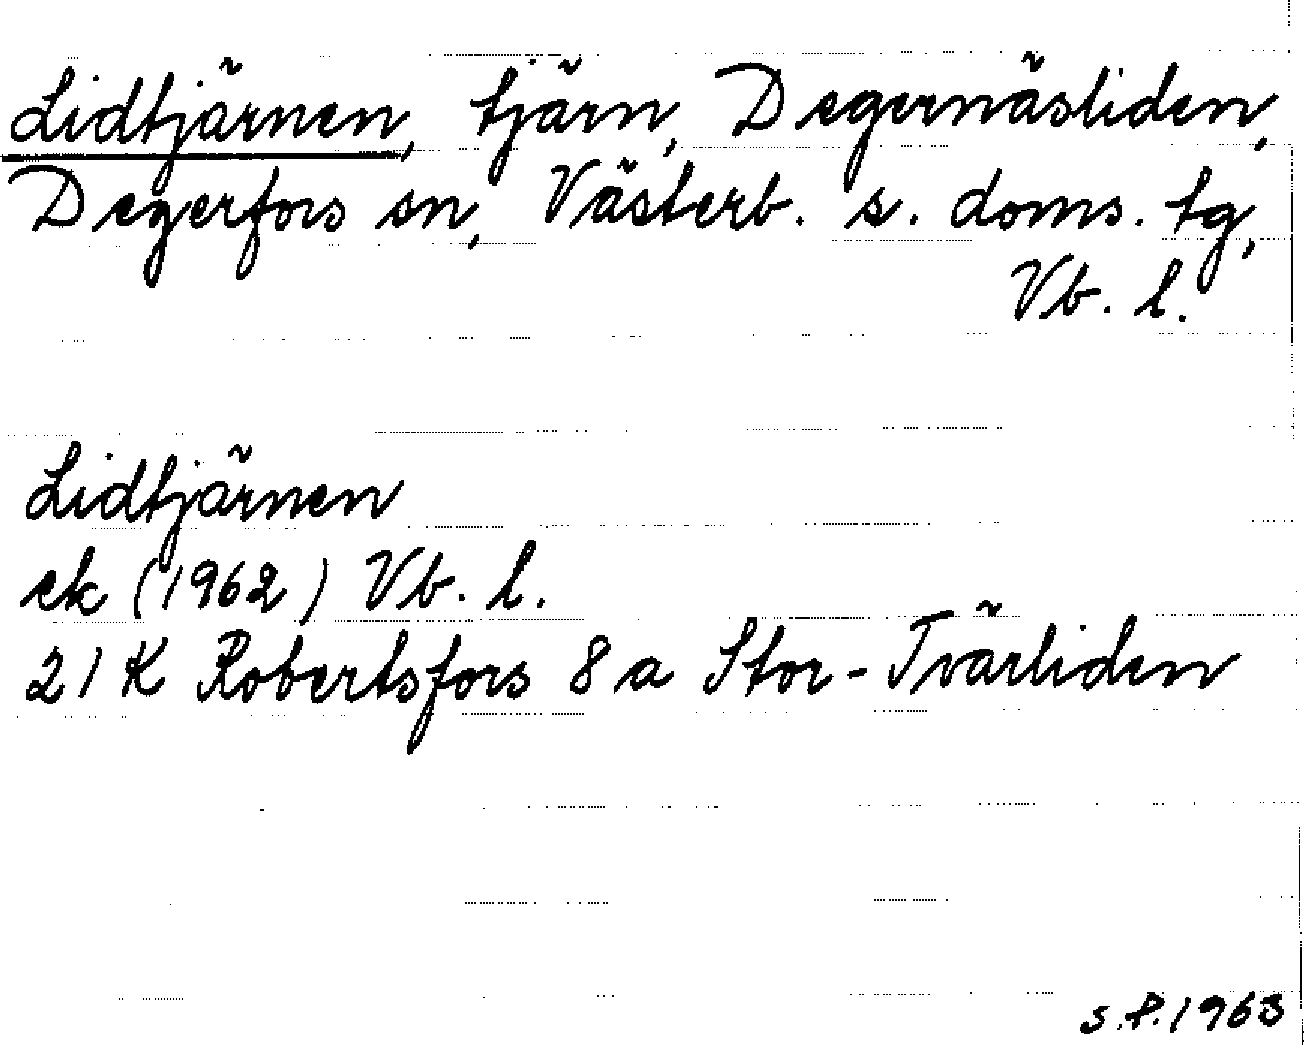 Lidtjärnen, tjärn, Degernäsliden,
Degerfors sn, Västerb. s. doms. tg,
Vb. l.
Lidtjärnen
ek (1962) Vb. l.
21 K Robertsfors 8 a Stor-Tvärliden
S.P. 1963